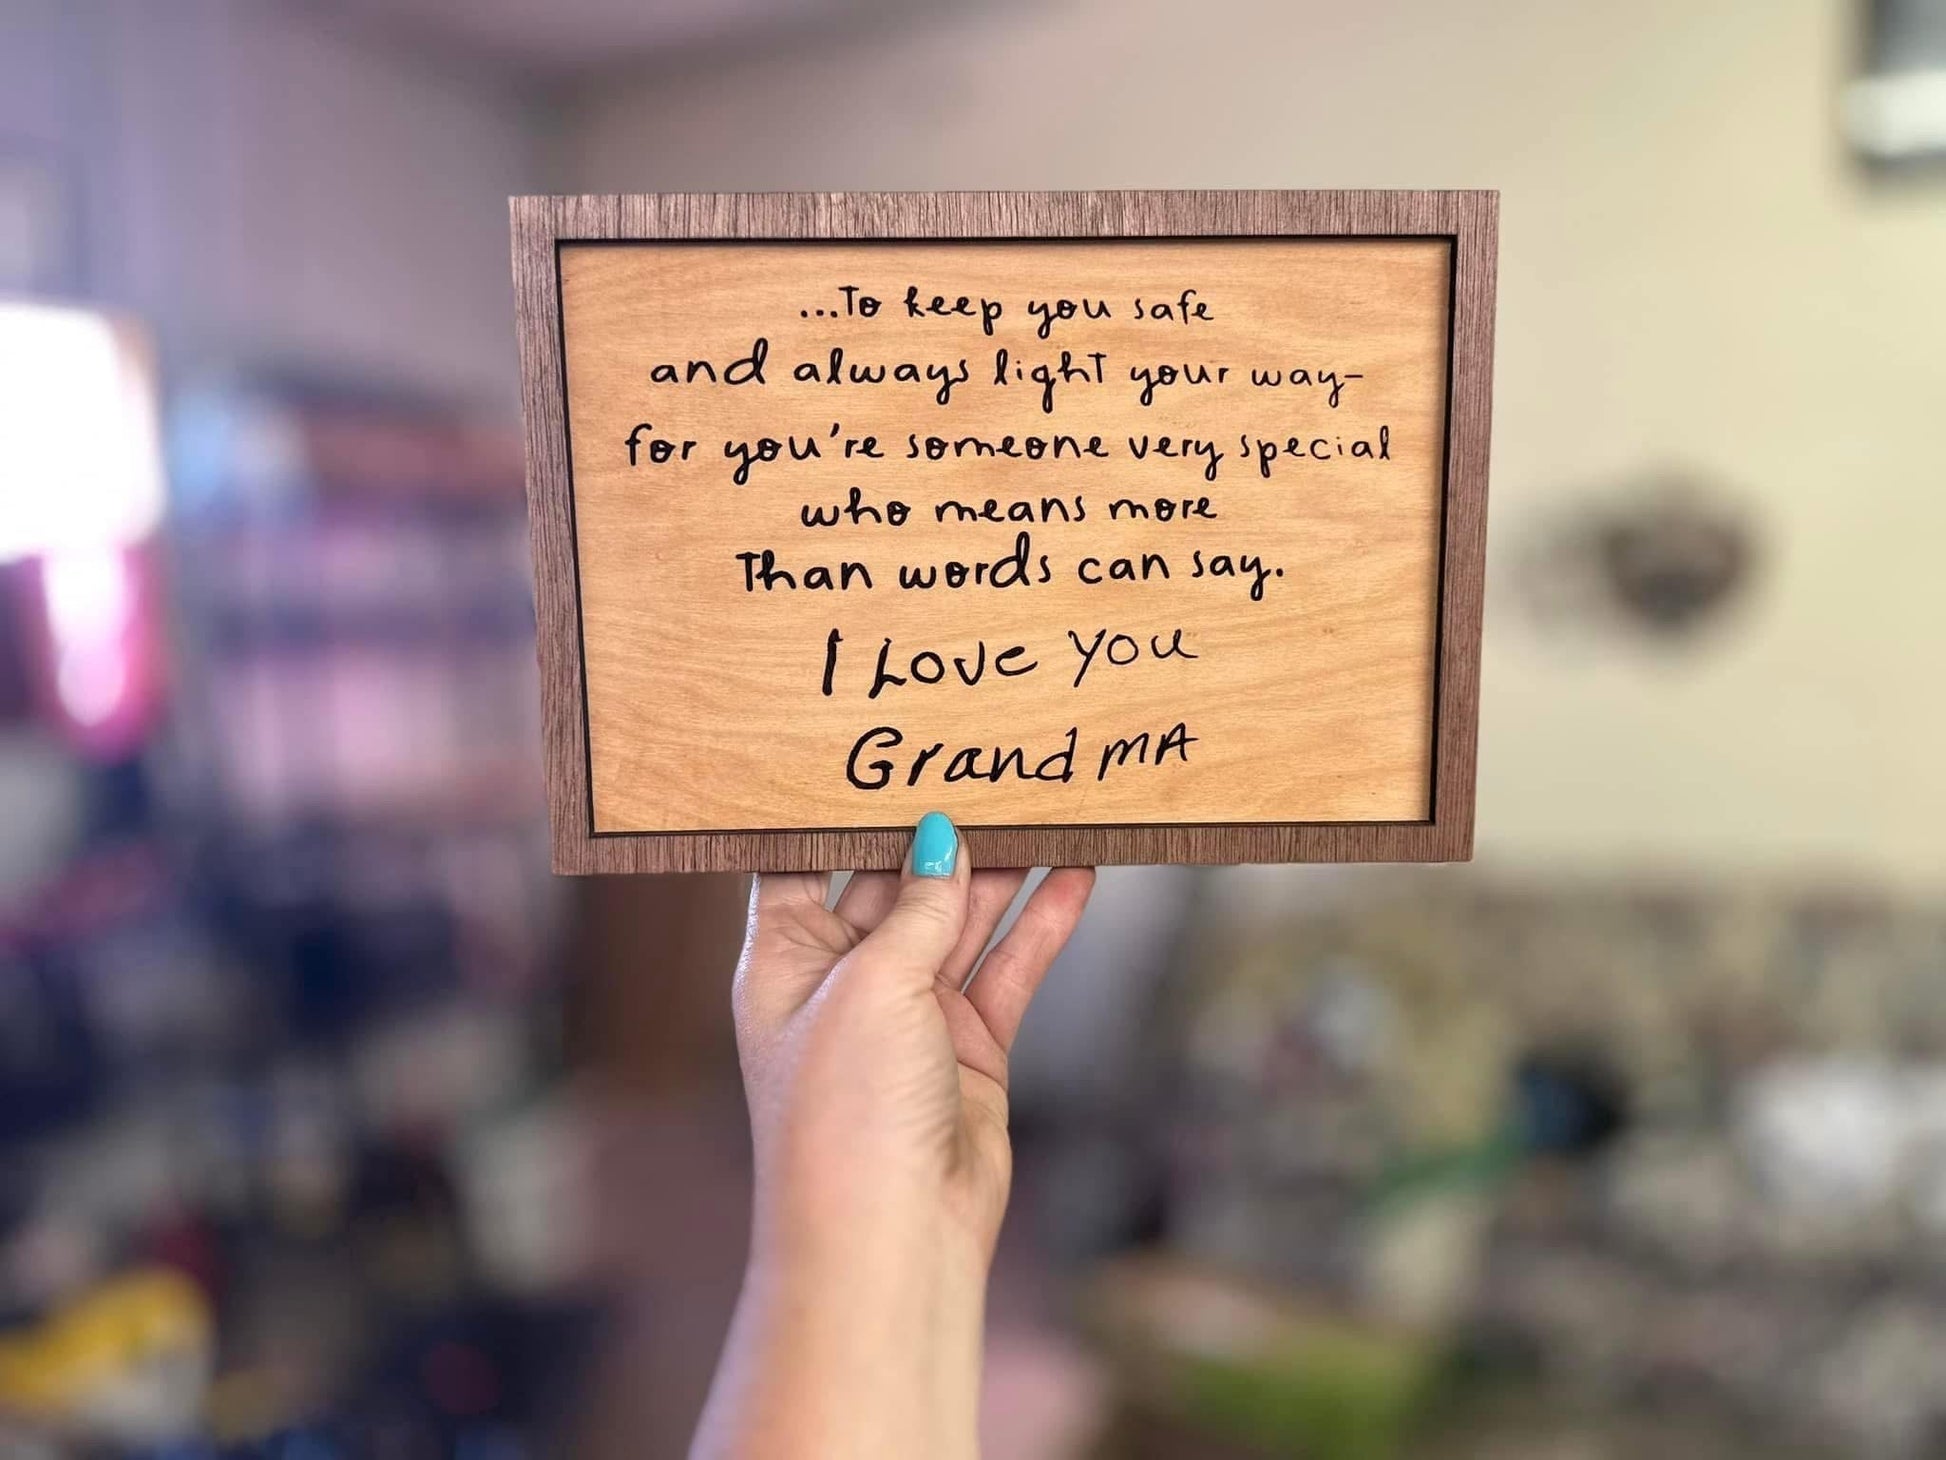 ...To keep you safe
and always light your way-
for you're someone very special
who means more
Than words can say.
I Love you
Grandma